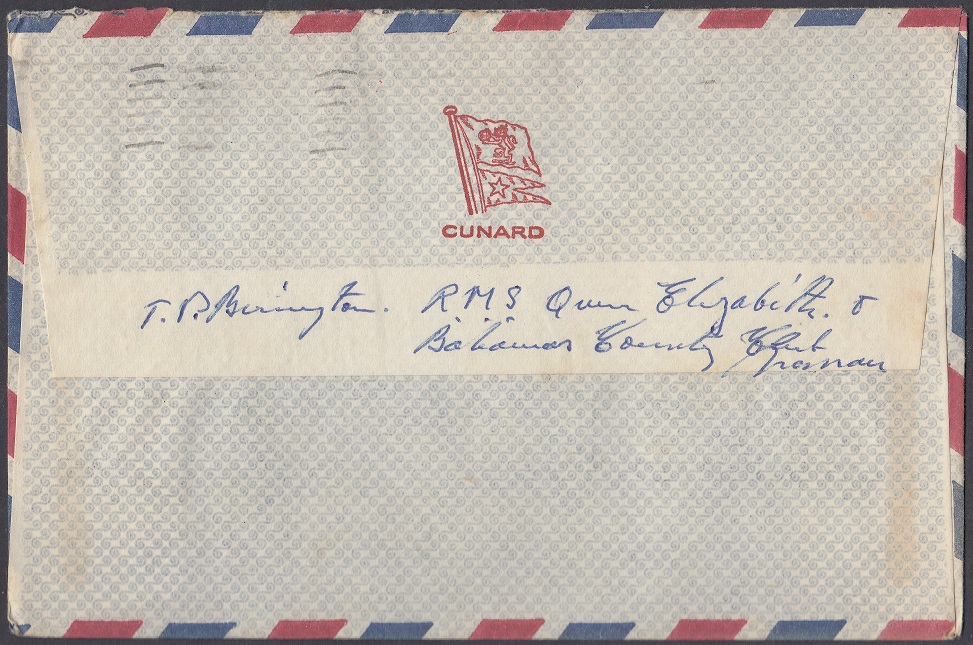 CUNARD
T. P. Berington. R.M.S Queen Elizabeth. &
Bahamas Country Club
Nassau